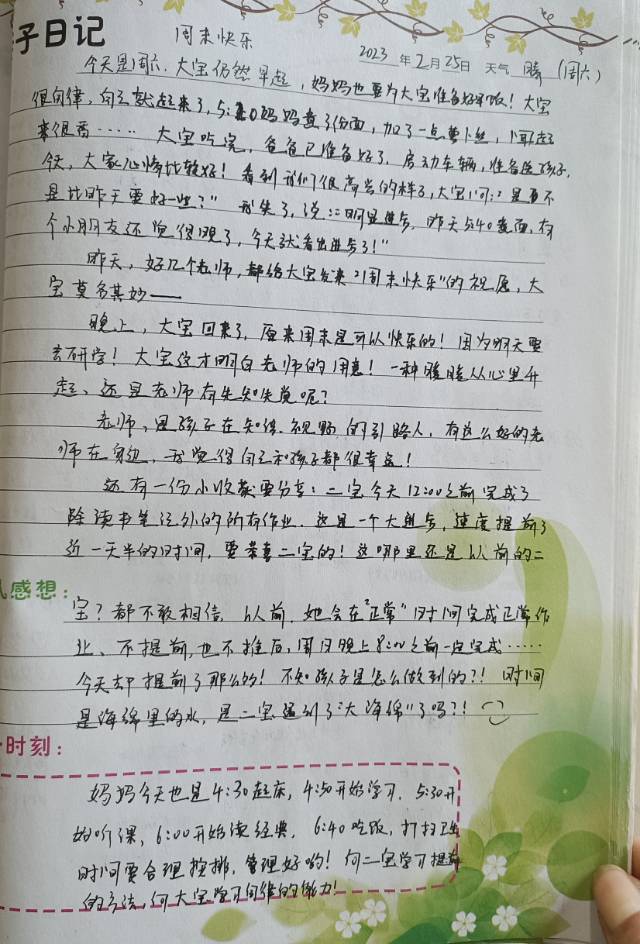 子日记
周末快乐
2023 年 2月 25日 天气 晴 (周六)
今天是周六,大宝仍然早起,妈妈也要为大宝准备好早饭!大宝
很自律,自己就起来了,5:20妈妈煮了份面,加了一点萝卜丝,闻起
来很香…… 大宝吃完,爸爸已准备好了,启动车辆,准备送孩子,
今天,大家心情比较好!看到我们很高兴的样子,大宝问:"是不
是比昨天要好一些?" 我笑了,说:"明显进步,昨天5:40煮面,有
个小朋友还觉得晚了,今天就看出进步了!"
昨天,好几个老师,都给大宝发来"周末快乐"的祝愿,大
宝莫名其妙——
晚上,大宝回来了,原来周末是可以快乐的!因为明天要
去研学!大宝这才明白老师的用意!一种暖暖从心里升
起、还是老师有先知先觉呢?
老师,是孩子在知识、视野的引路人,有这么好的老
师在身边,我觉得自己和孩子都很幸运!
还有一份小收获要分享:二宝今天12:00之前完成了
除读书笔记外的所有作业,这是一个大进步,速度提前了
近一天半的时间,要恭喜二宝的!这哪里还是以前的二
感想:
宝?都不敢相信,以前,她会在"正常"时间完成正常作
业、不提前,也不推后,周日晚上8:00之前一定完成……
今天却提前了那么多!不知孩子是怎么做到的?!时间
是海绵里的水,是二宝遇到了"大海绵"了吗?!
时刻:
妈妈今天也是4:30起床,4:50开始学习,5:30开
始听课,6:00开始读经典,6:40吃饭,打扫卫生
时间要合理安排,管理好哟!向二宝学习提前
的方法,向大宝学习自律的能力!